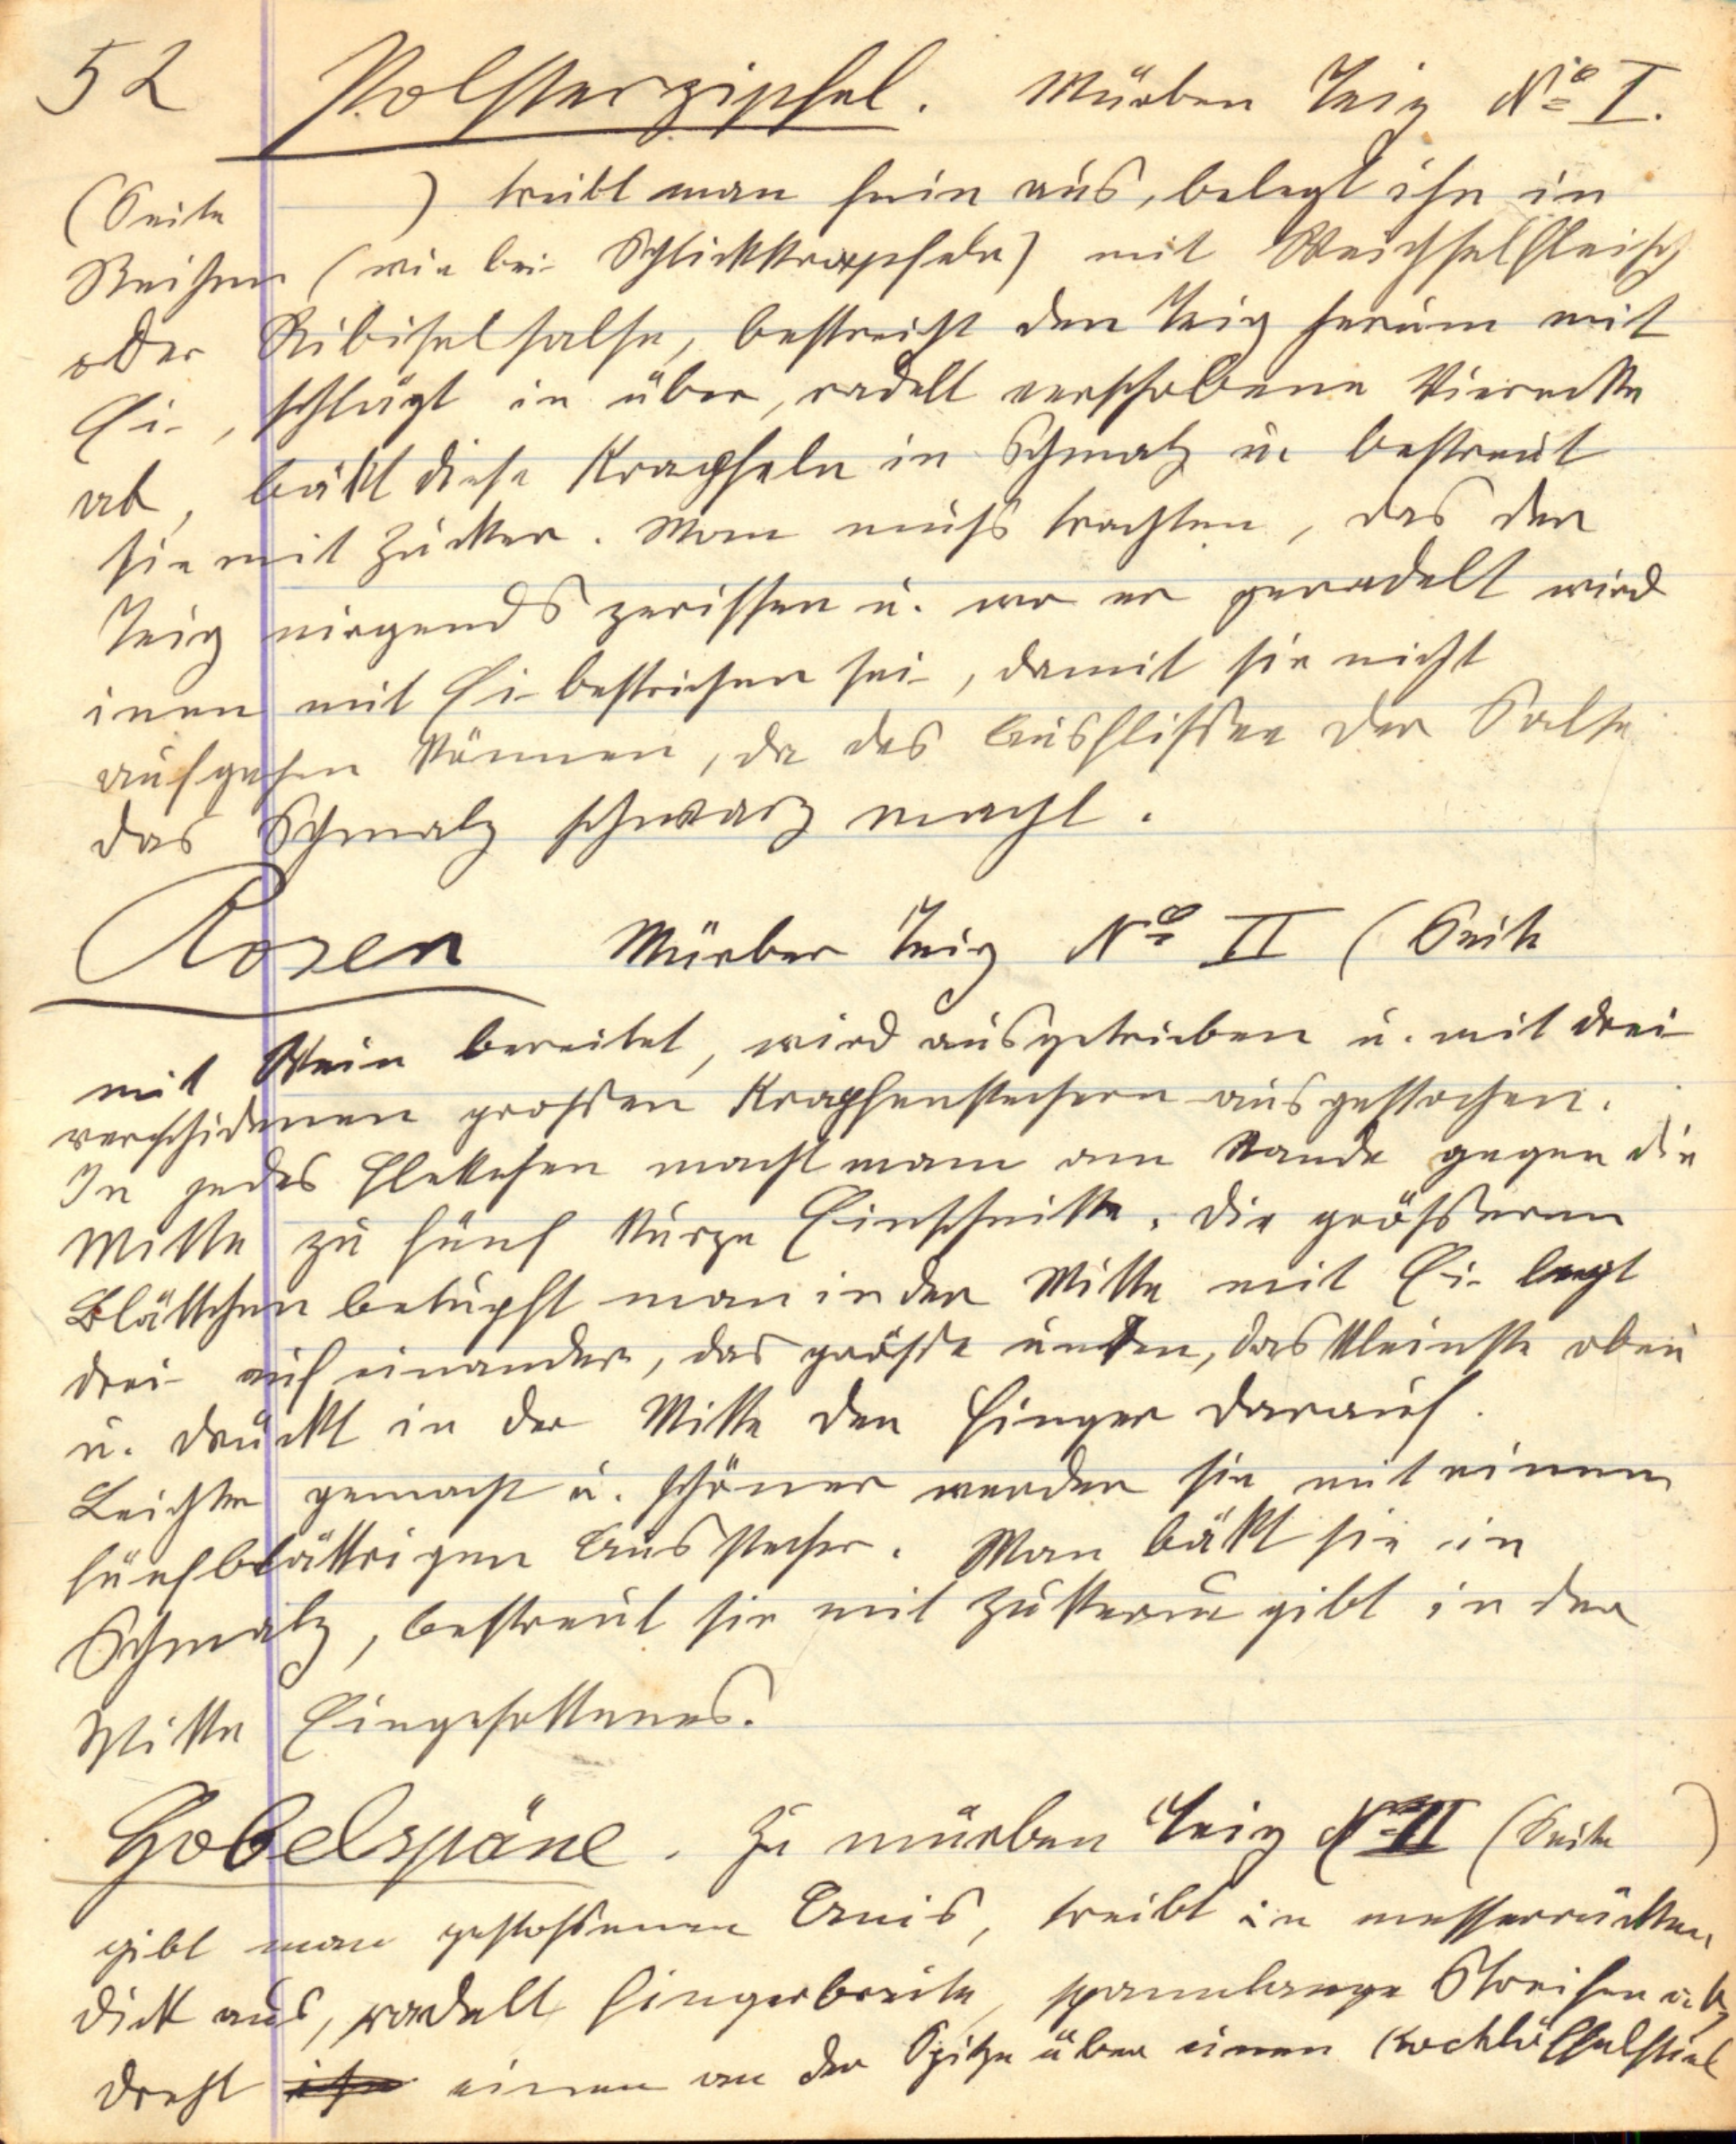 52 Polsterzipfel. Mürben Teig No I.
(Seite ) treibt man fein aus, belegt ihn in
Reihen (wie bei Schlickkrapfeln) mit Weichselfleisch
oder Ribiselsalse, bestreicht den Teig herum mit
Ei, schlägt in über, radelt verschobene Vierecke
ab, bäckt diese Krapfeln in Schmalz u. bestreut
sie mit Zucker. Man muß trachten, das der
Teig nirgends zerissen u. wo er geradelt wird
inen mit Ei bestrichen sei, damit sie nicht
aufgehen können, da das Ausflißen der Salse
das Schmalz schwarz macht.
Rosen Mürber Teig No II (Seite
mit Wein bereitet, wird ausgetrieben u. mit drei
verschidenen großen Krapfenstechern ausgestochen.
In jedes Flekchen macht mann am Rande gegen die
Mitte zu fünf kurze Einschnitte. Die größeren
Blättchen betupft man in der Mitte mit Ei legt
drei auf einander, das größte unten, das kleinste oben
u. drückt in der Mitte den Finger darauf.
Leichter gemacht u. schöner werden sie mit einem
fünfblättrigen Ausstecher. Man bäkt sie in
Schmalz, bestreut sie mit Zucker u. gibt in der
Mitte Eingesottenes.
Hobelspäne. Zu mürben Teig No II (Seite )
gibt man gestoßenen Anis, treibt in messerrücken
dick aus, radelt fingerbreite, spannlange Streifen ab,
dreht ihn einen an der Spitze über einen Kochlöffelstiel